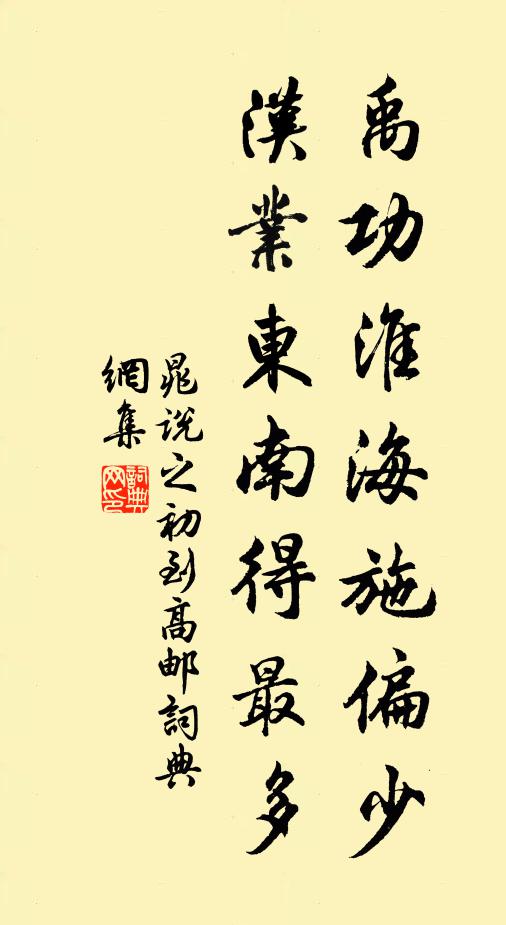 禹功淮海施偏少
漢業東南得最多
晁說之初到高邮詞典
網集
詞典
网印